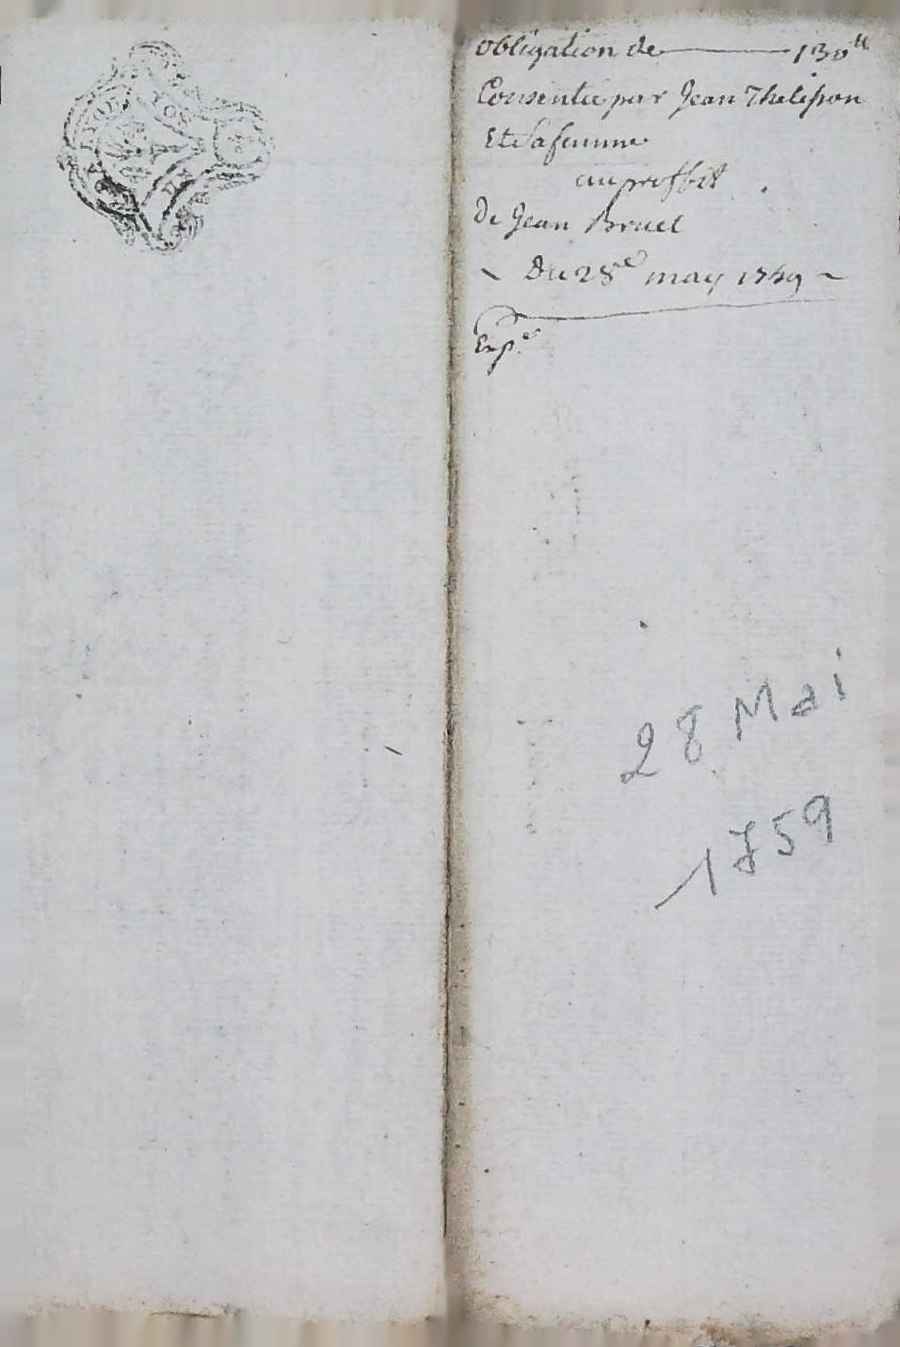 obligation de 130ᵗᵗ
Consentie par Jean Thelisson
Et Sa femme
au proffit
De Jean Bruel
~ Du 28ᵉ may 1759 ~
Expᵉ
28 Mai
1759